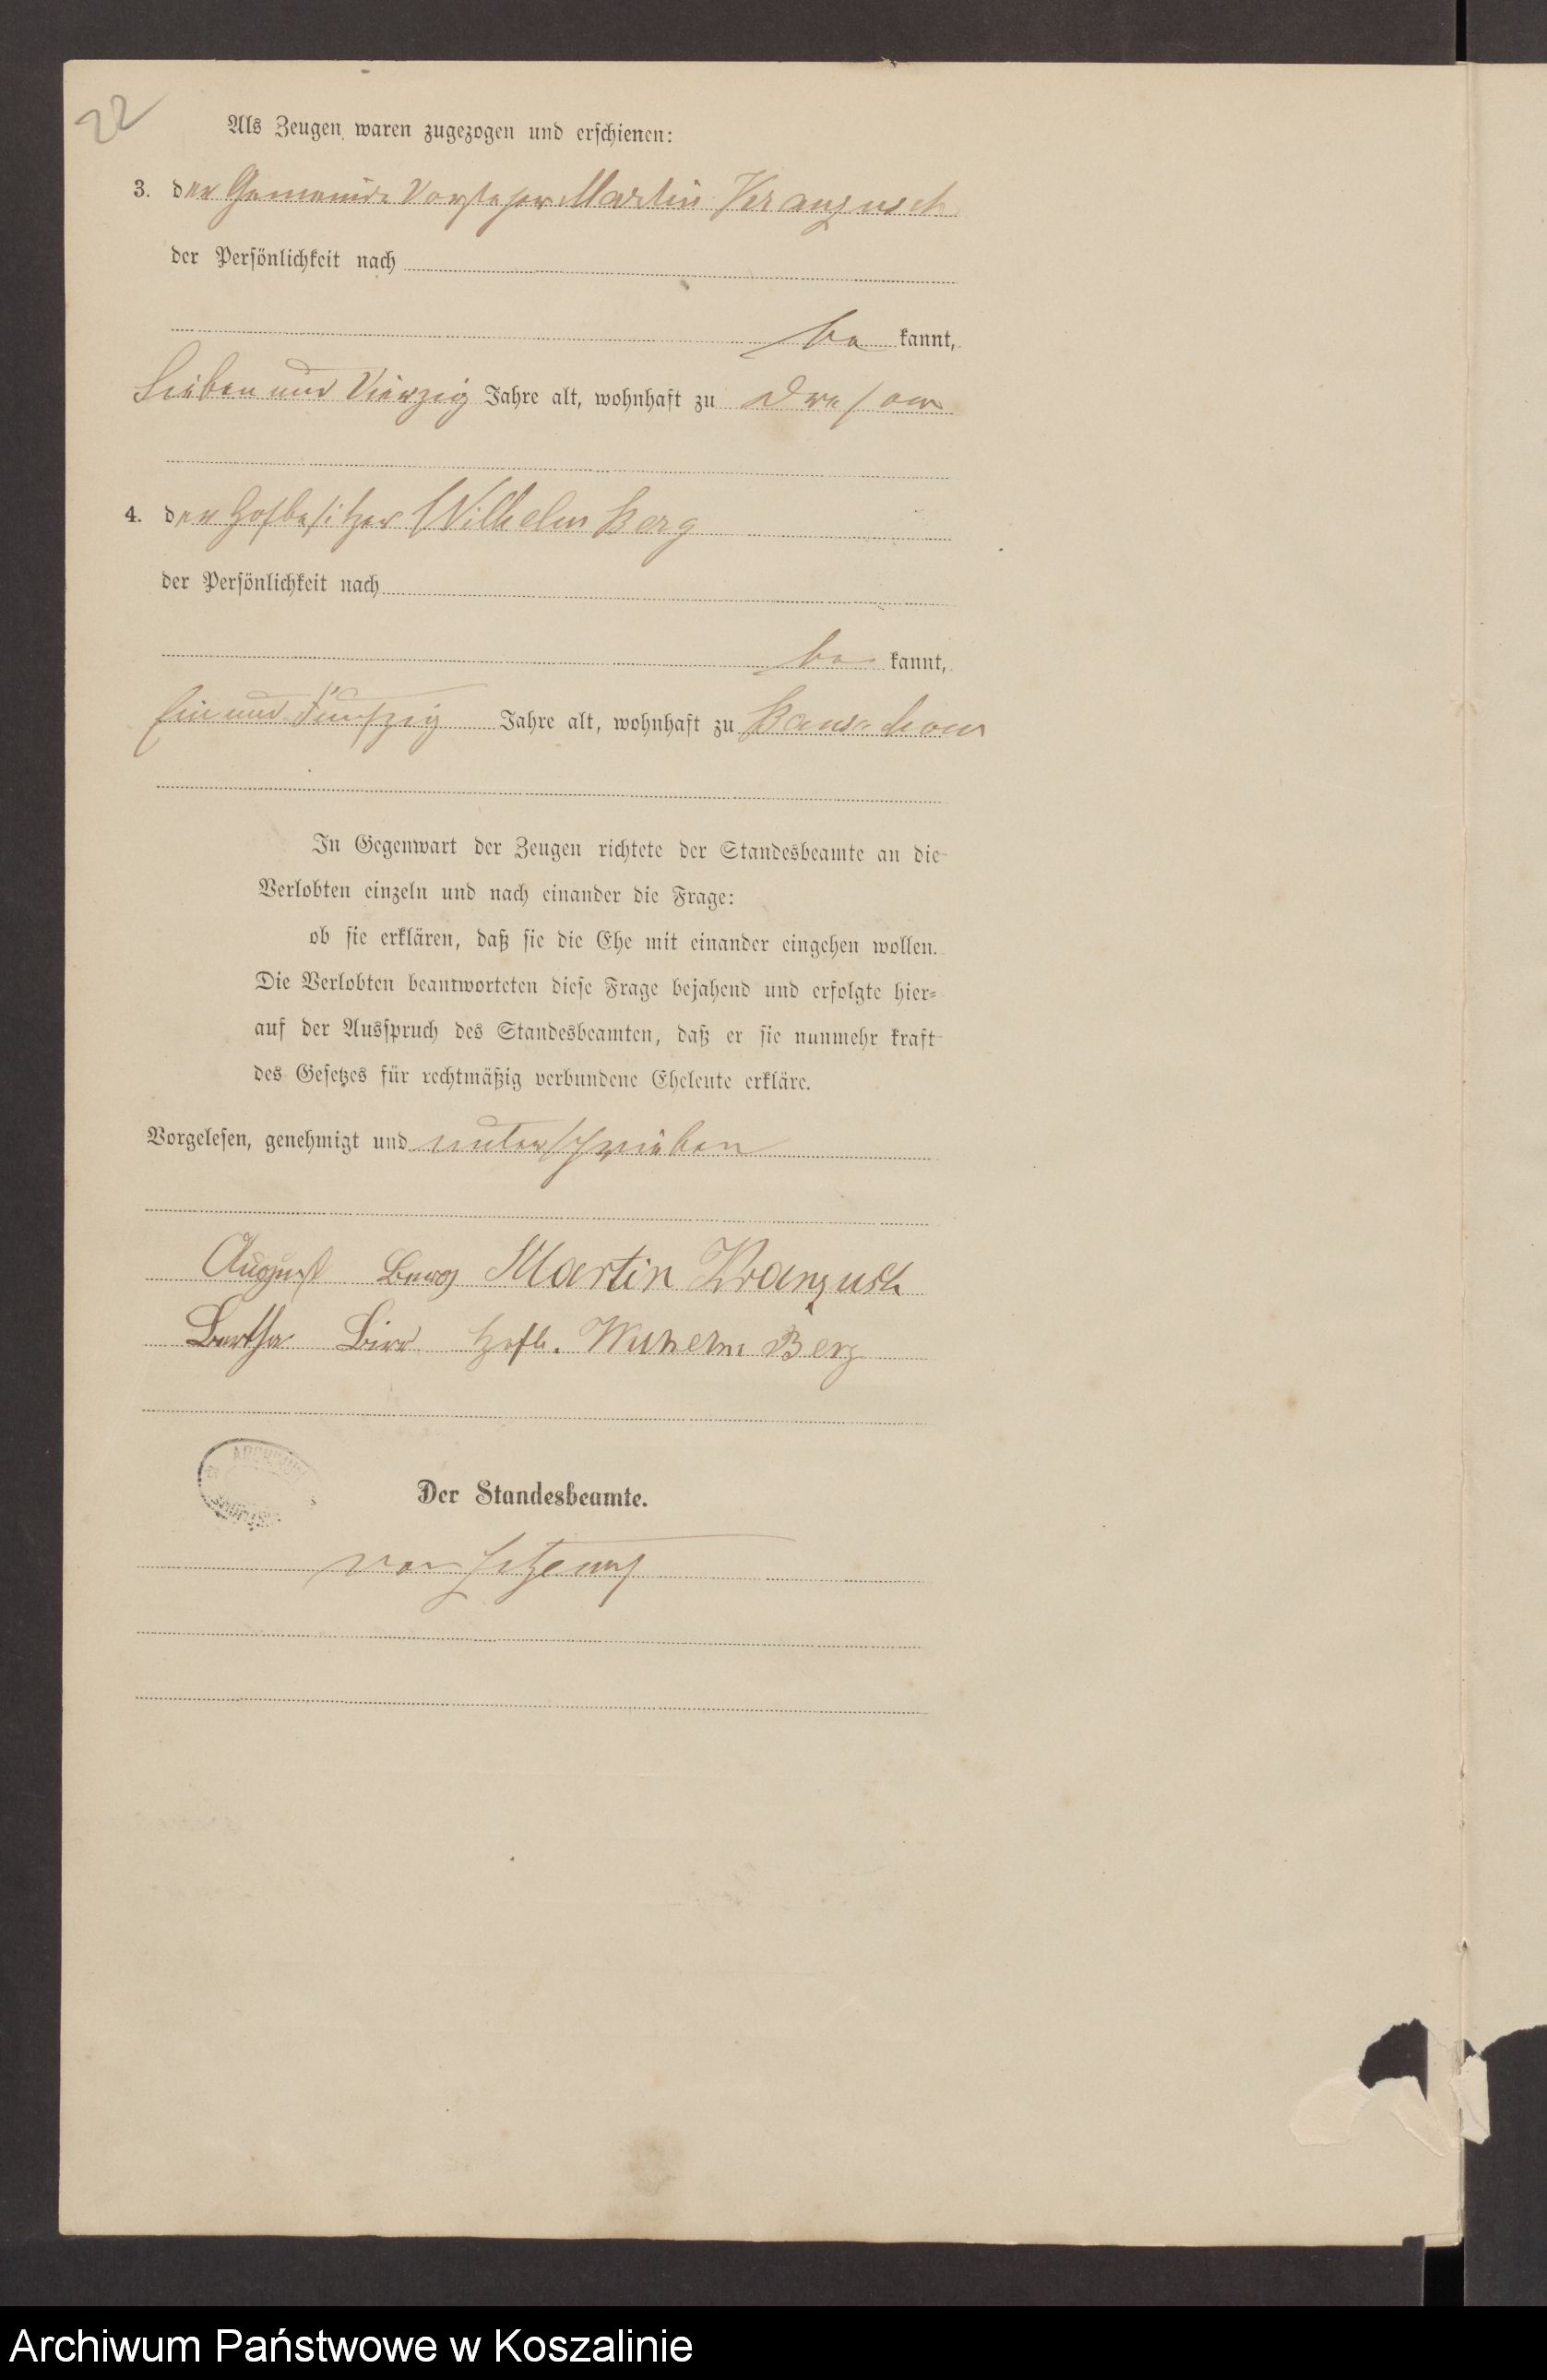 22
Als Zeugen waren zugezogen und erschienen:
3. der Gemeinde Vorsteher Martin Kranzusch
der Persönlichkeit nach
be kannt,
Sieben und Vierzig Jahre alt, wohnhaft zu Dresow
4. der Hofbesitzer Wilhelm Berg
der Persönlichkeit nach
be kannt,
Ein und Fünfzig Jahre alt, wohnhaft zu
In Gegenwart der Zeugen richtete der Standesbeamte an die
Verlobten einzeln und nach einander die Frage:
ob sie erklären, daß sie die Ehe mit einander eingehen wollen.
Die Verlobten beantworteten diese Frage bejahend und erfolgte hier-
auf der Ausspruch des Standesbeamten, daß er sie nunmehr kraft
des Gesetzes für rechtmäßig verbundene Eheleute erkläre.
Vorgelesen, genehmigt und unterschrieben
August Berg Martin Kranzusch
Bertha Hofb. Wilhelm Berg
ARCHIWUM
Der Standesbeamte.
von
Archiwum Państwowe w Koszalinie